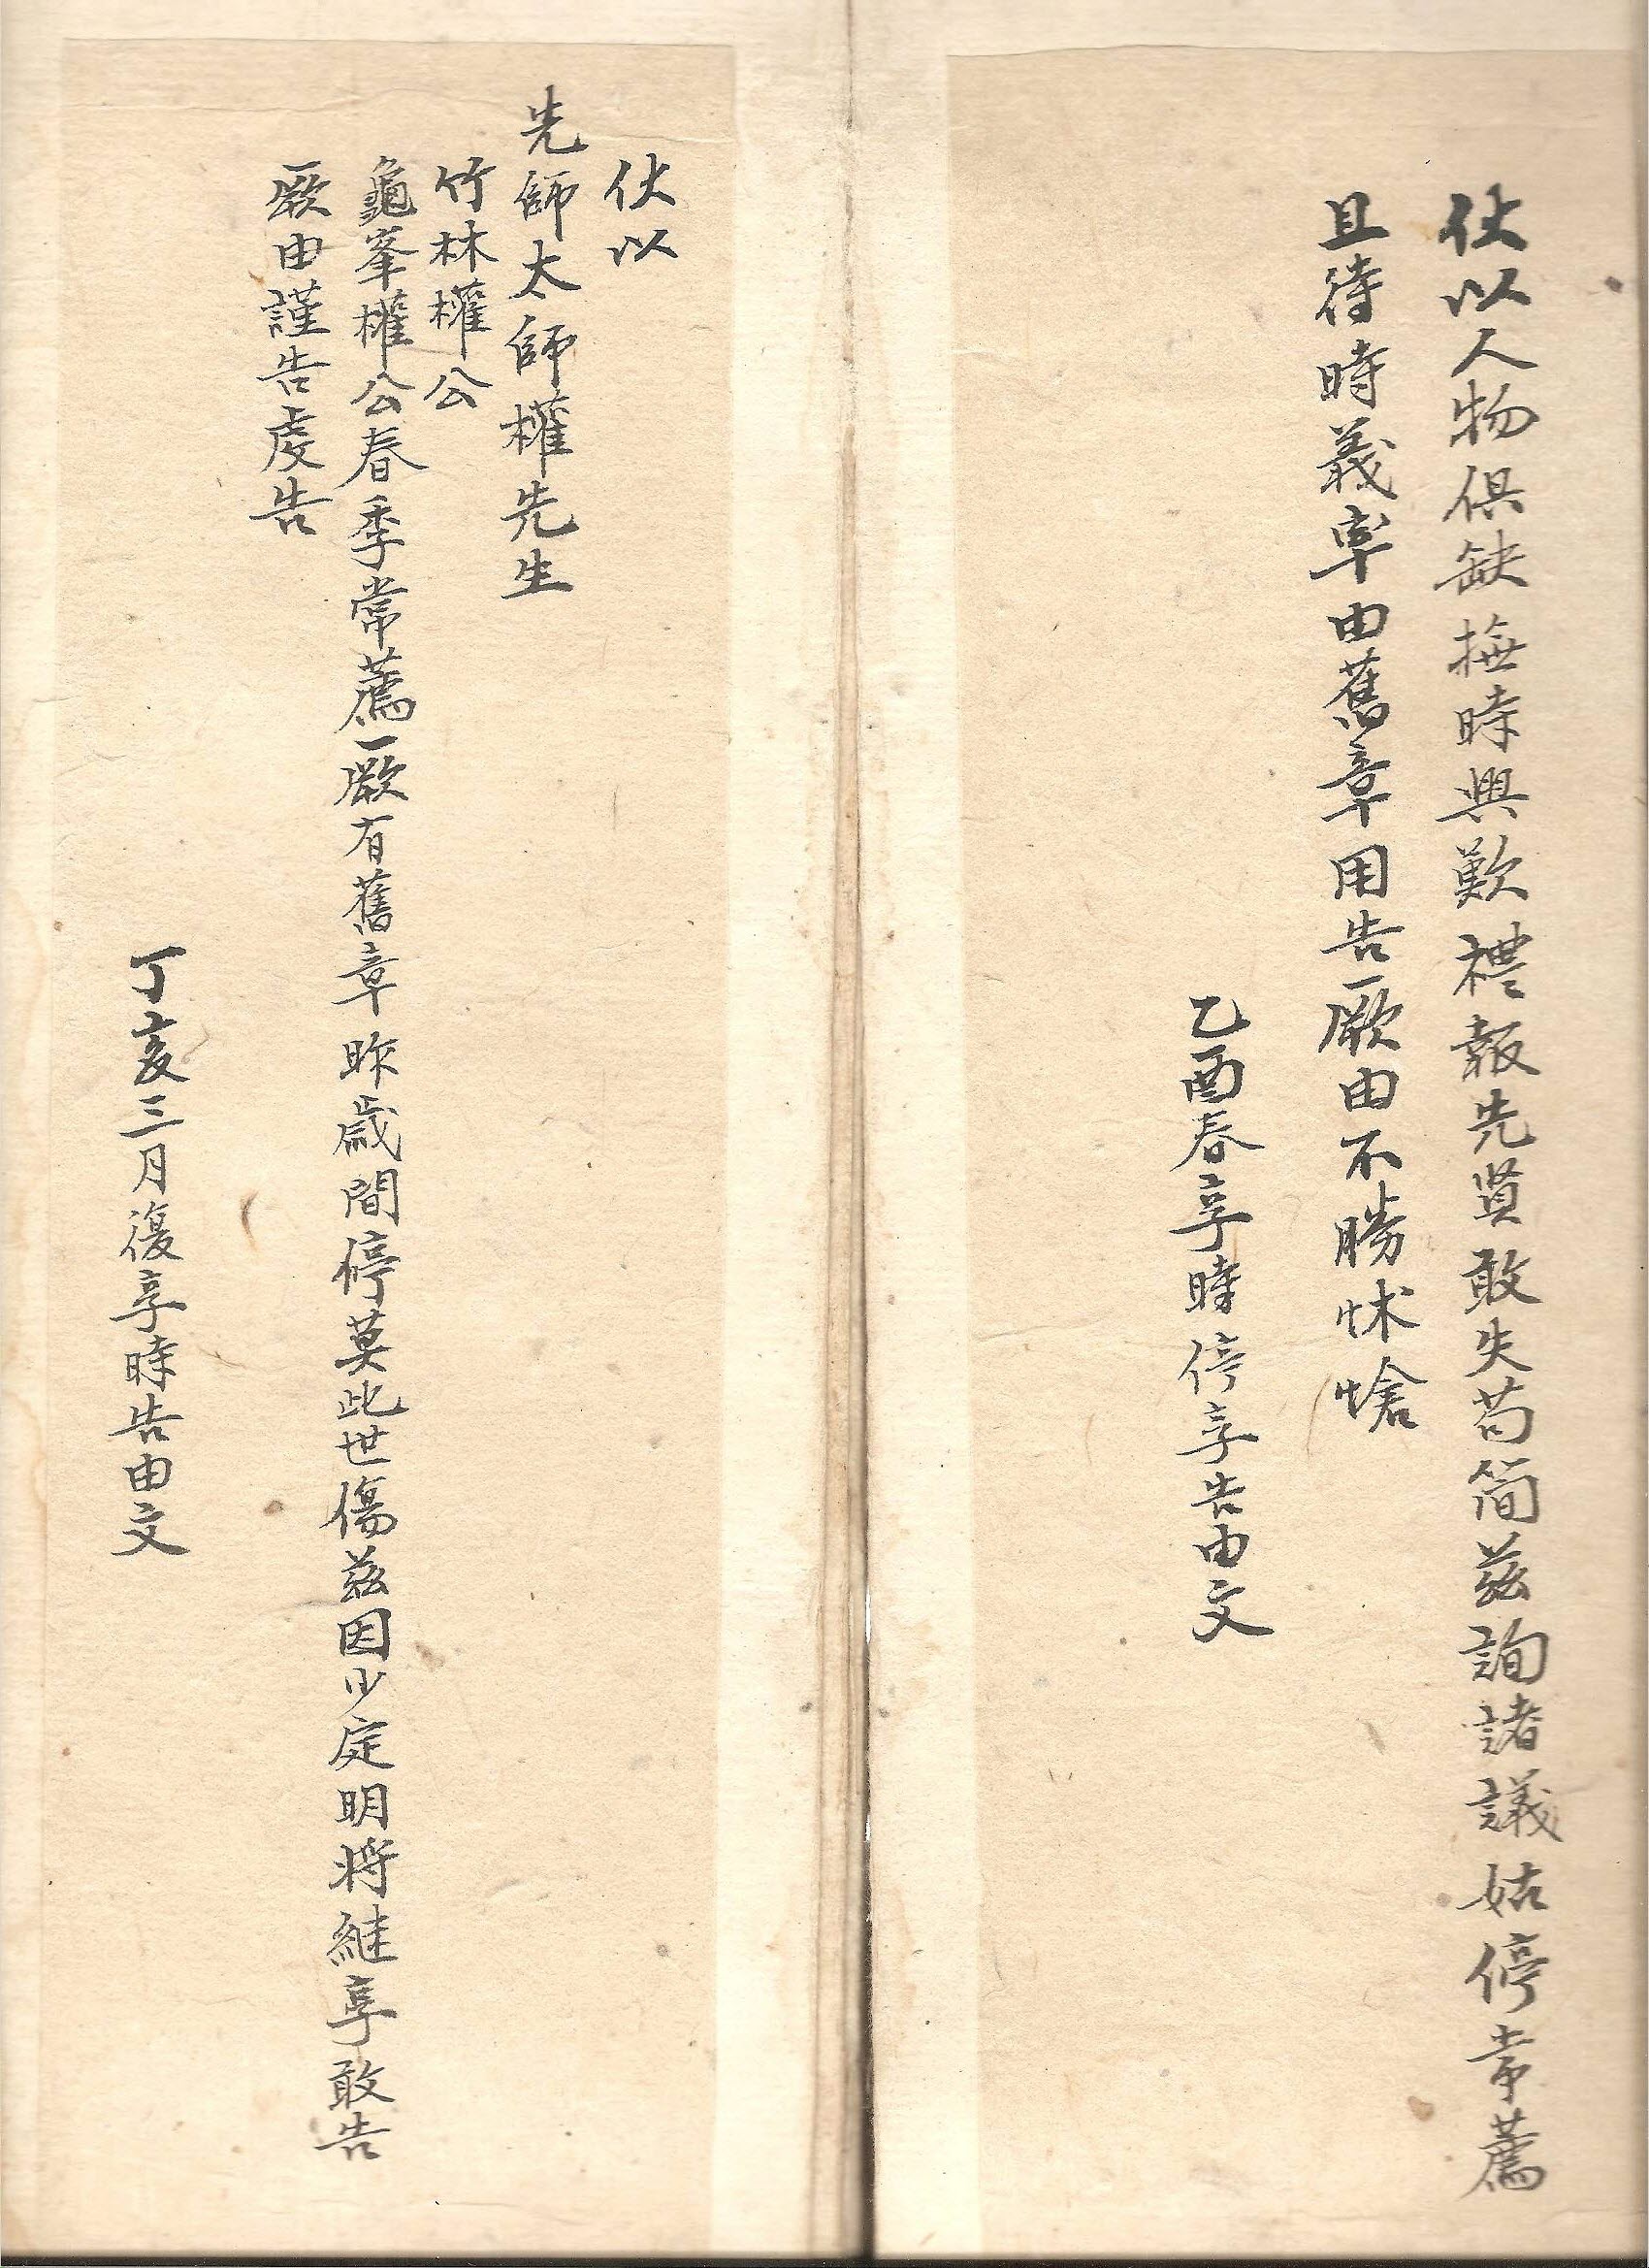 伏以人物俱缺撫時興歎禮報先賢敢失苟简玆詢諸議姑停常薦
且待時義率由舊章用告厥由不勝怵愴
乙酉春享時停享告由文
伏以
先師太師權先生
竹林權公
龜峯權公春季常薦厥有舊章昨歲間停莫此世傷玆因少定明将継享敢告
厥由謹告虔告
丁亥三月復享時告由文